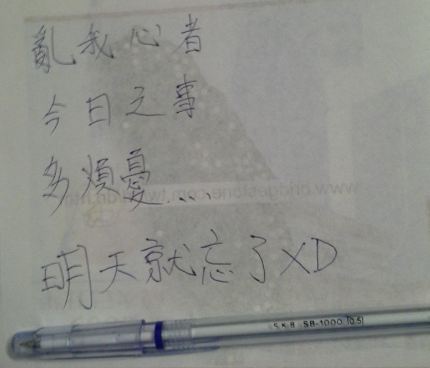 亂我心者
今日之事
多煩憂....
明天就忘了XD
www.bridgestone.com.tw
SKB SB-1000 0.5